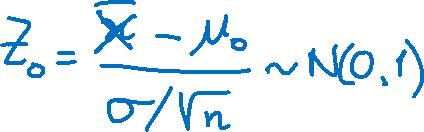 Z₀ = (X̄ - μ₀) / (σ/√n) ~ N(0,1)